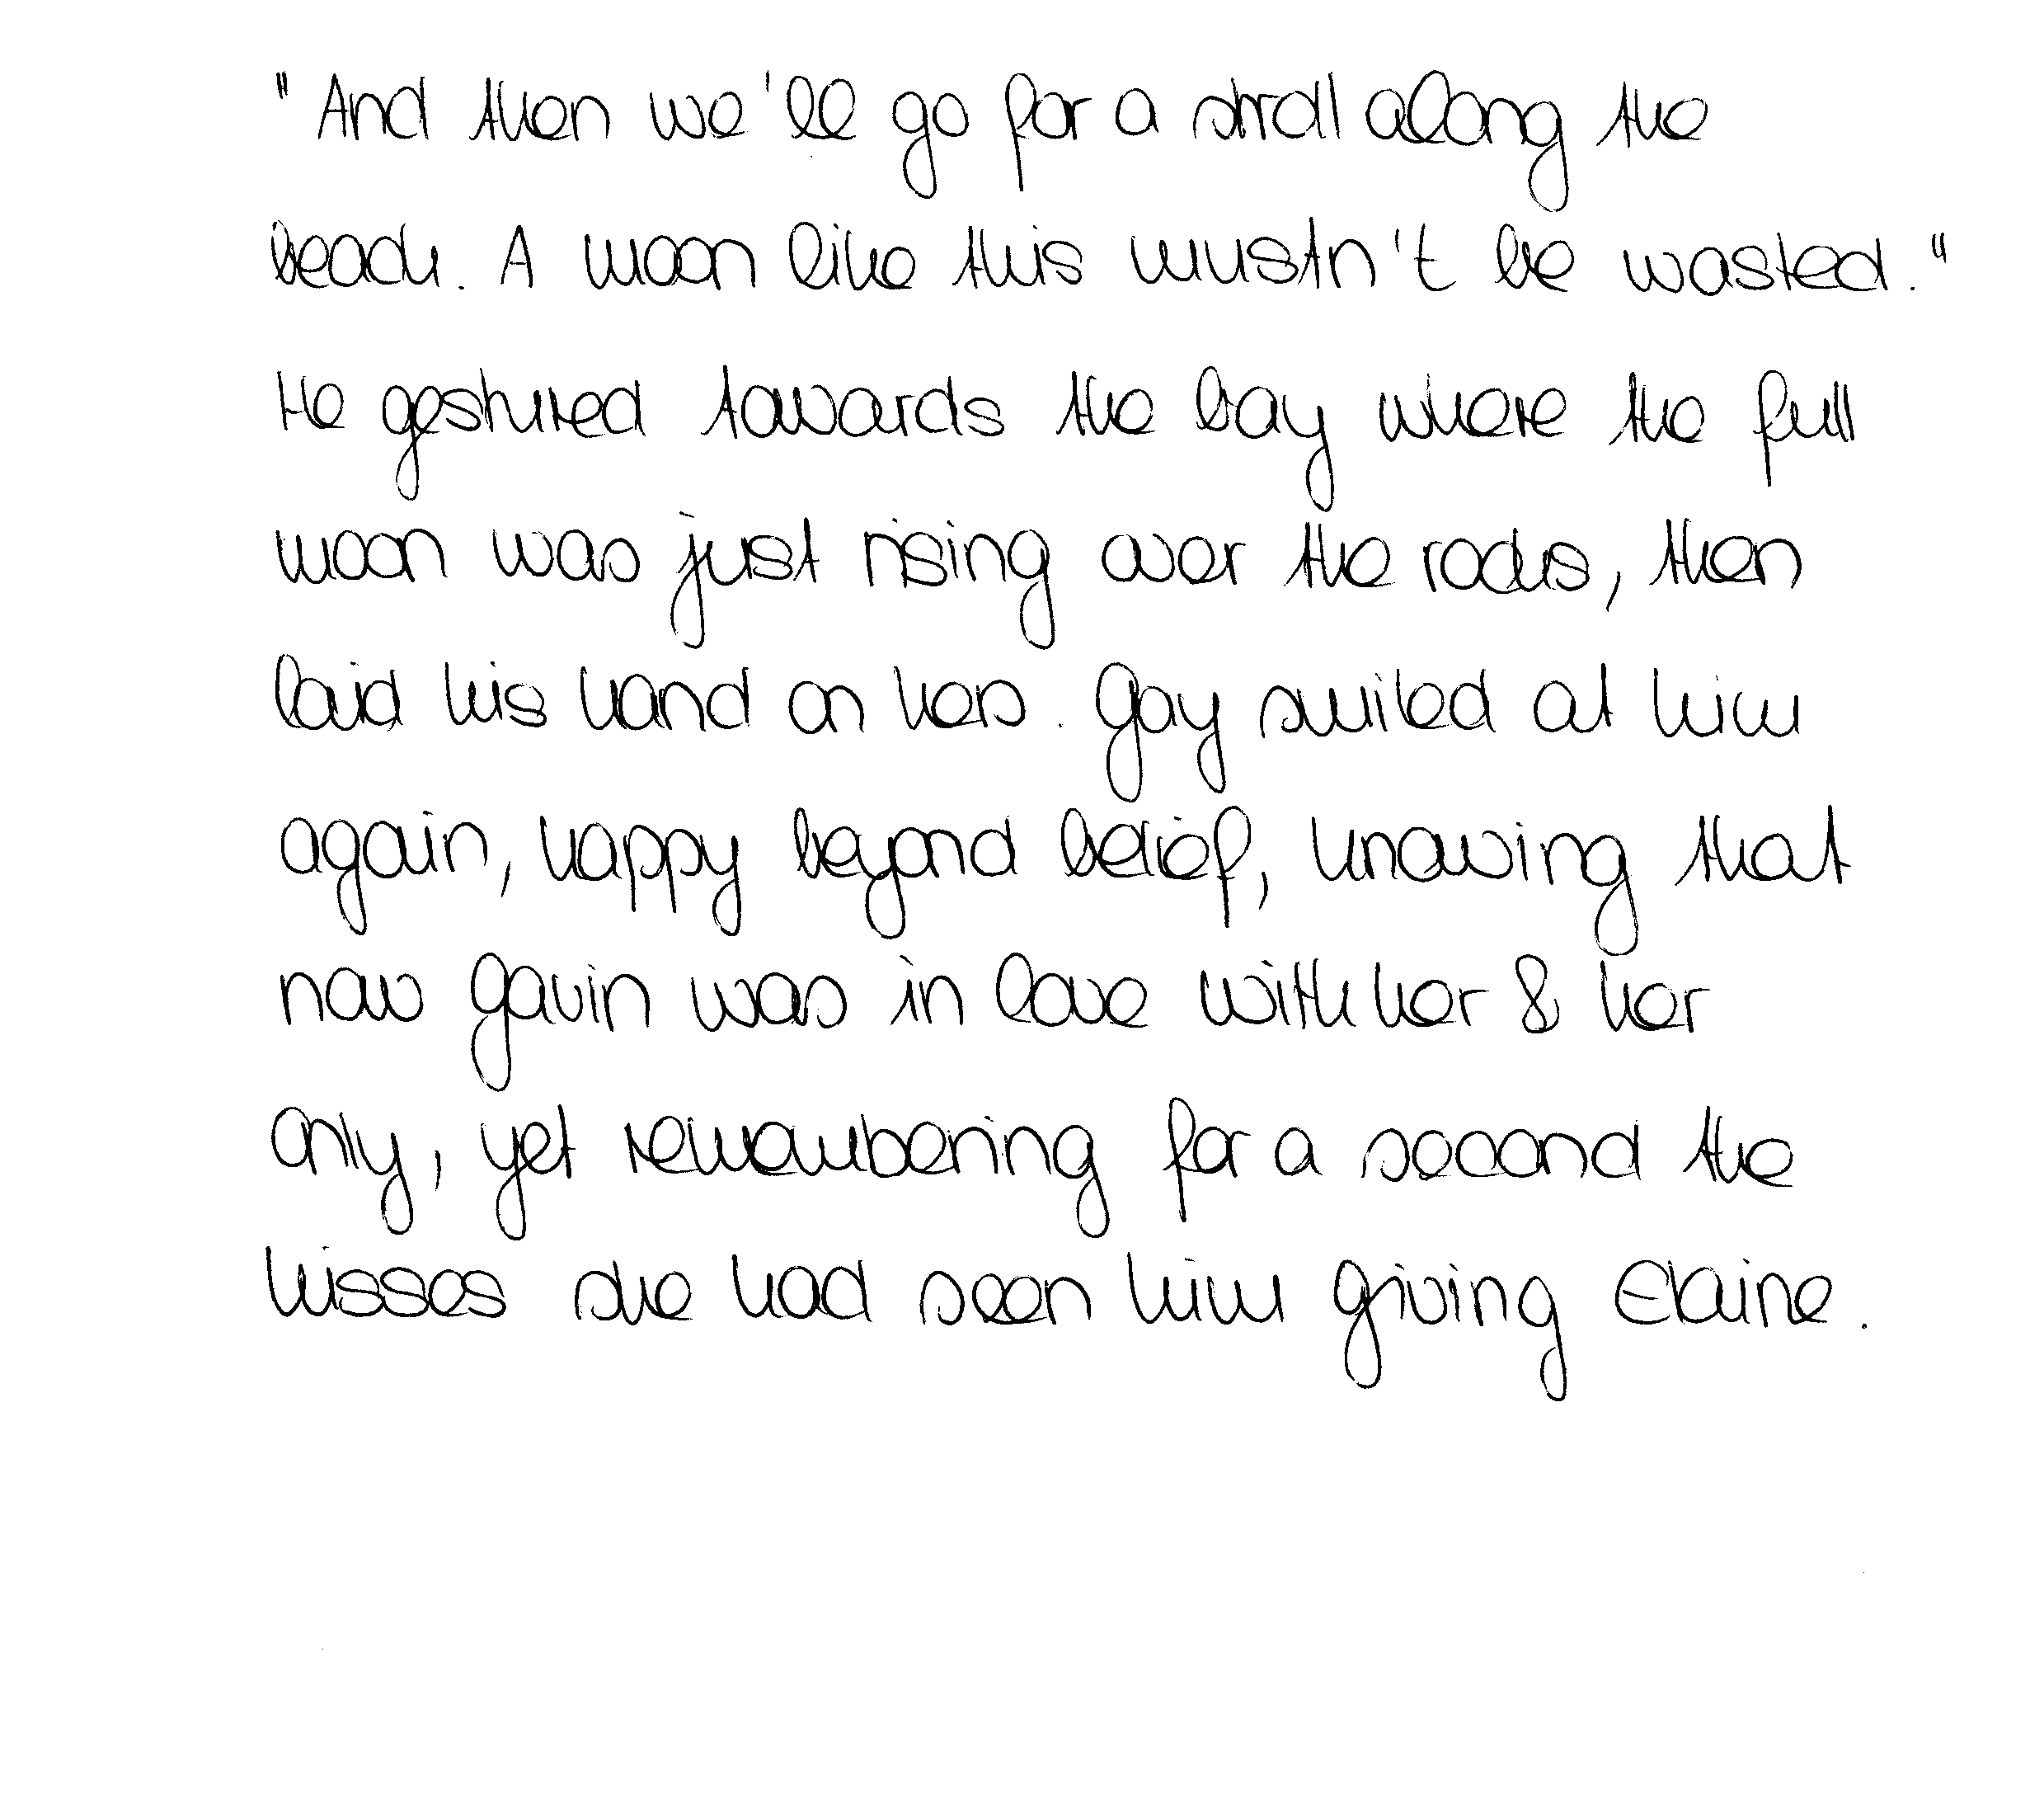 "And then we'll go for a stroll along the
beach. A moon like this mustn't be wasted."
He gestured towards the bay where the full
moon was just rising over the rocks, then
laid his hand on hers. Gay smiled at him
again, happy beyond belief, knowing that
now Gavin was in love with her & her
only, yet remembering for a second the
kisses she had seen him giving Elaine.